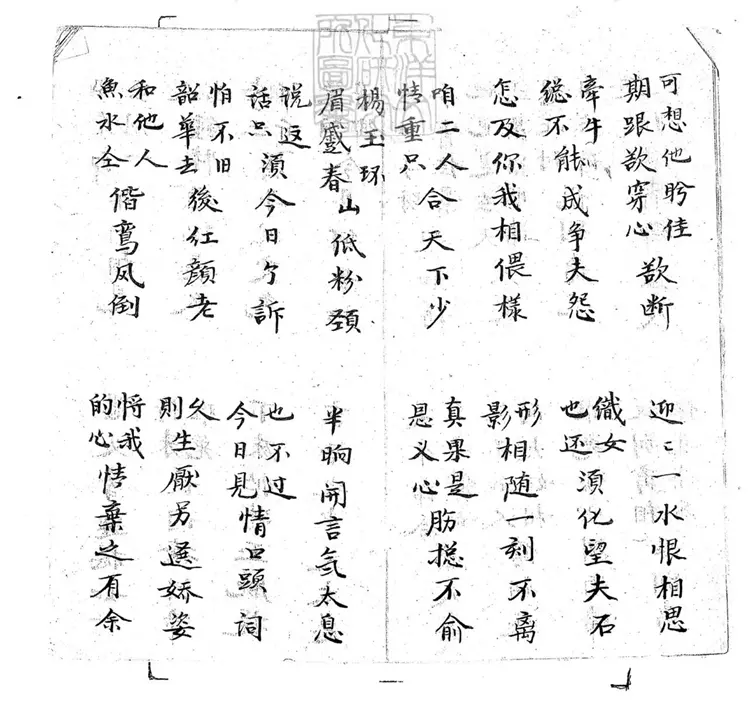 東洋文化研究所圖書
可想他盼佳期跟欲穿心欲断
迎〻一水恨相思
牽牛縂不能成争夫怨
織女也还須化望夫石
怎及你我相偎様
形影相随一刻不离
咱二人情重只合天下少
真果是恩义心肠揔不俞
楊玉环眉蹙春山低粉頸
半晌開言氣太息
说这话只須今日个訴
也不过今日見情口頭词
怕不旧韶華去後红颜老
久則生厭另选娇姿
和他人魚水仝偕鸾凤倒
将我的心情棄之有余